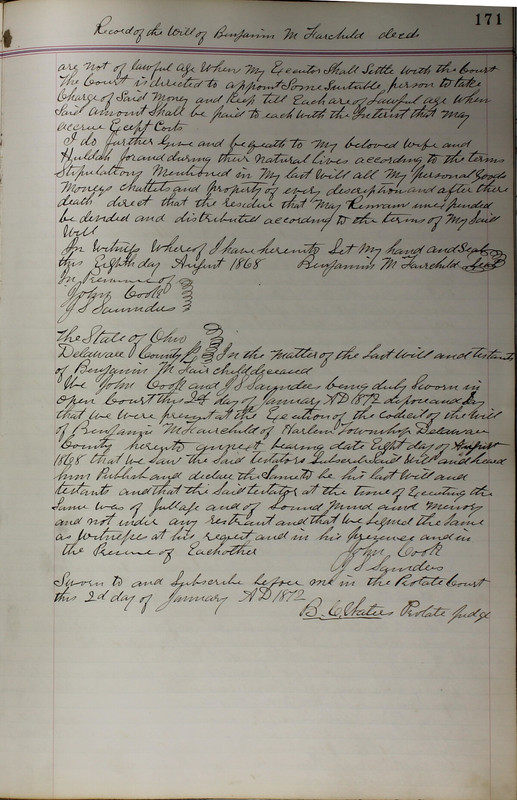 171
Record of the Will of Benjamin M Fairchild decds
are not of lawful age When My Executor Shall Settle with the Court
The Court is directed to appoint Some Suitable person to take
Charge of Said Money and Keep till Each are of Lawful age When
Said amount Shall be paid to each with the Interest that May
accrue Except Costs
I do further Give and bequeath to My beloved Wife and
Huldah for and during their Natural lives according to the terms
Stipulations Mentioned in My last Will all My personal Goods
Moneys Chattels and property of every description and after there
death direct that the residue that May Remain unexpended
be devided and distributed according to the terms of My Said
Will
In Witness Whereof I have hereunto Set My hand and Seal
this Eighth day August 1868 Benjamin M Fairchild Seal
In Presence of
John Cook
J S Saunders
The State of Ohio
Delaware County In the Matter of the Last Will and testants
of Benjamin M Fairchild deceaced
We John Cook and J S Saunders being duly Sworn in
Open Court this 2d day of January AD 1872 depose and Say
that We were present at the Execution of the codecil of the Will
of Benjamin M Fairchild of Harlem Township Delaware
County hereunto anexed bearing date Eight day of August
1868 that we Saw the Said testators Subscribe Said Will and heard
him Publish and declare the Same to be his last Will and
testants and that the Said testator at the time of Executing the
Same was of full age and of Sound Mind and Memory
and not under any restraint and that we Signed the Same
as Witnesses at his request and in his presence and in
the Presence of Eachother
John Cook
J S Saunders
Sworn to and Subscribe before me in the Probate Court
this 2d day of January AD 1872
B. C. Waters Probate Judge